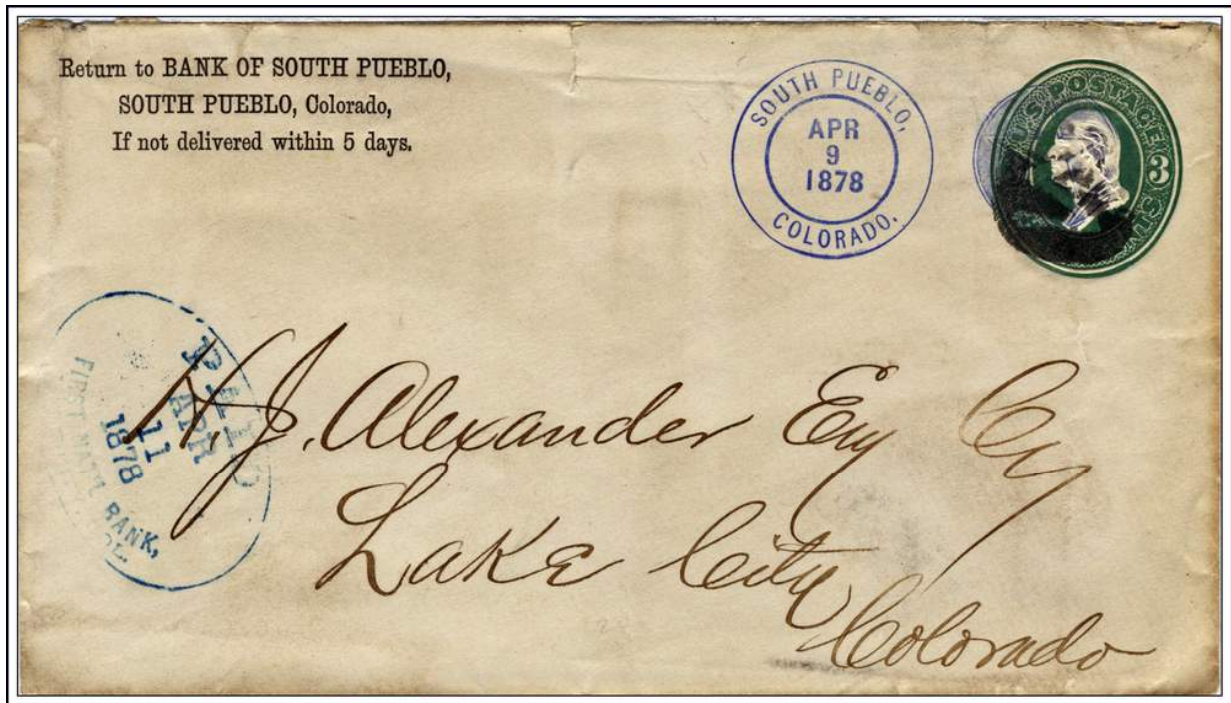 Return to BANK OF SOUTH PUEBLO,
SOUTH PUEBLO, Colorado,
If not delivered within 5 days.
SOUTH PUEBLO,
APR
9
1878
COLORADO.
U.S. POSTAGE
3
PAID
APR
11
1878
FIRST NAT'L BANK,
H. J. Alexander Esq
Lake City
Colorado